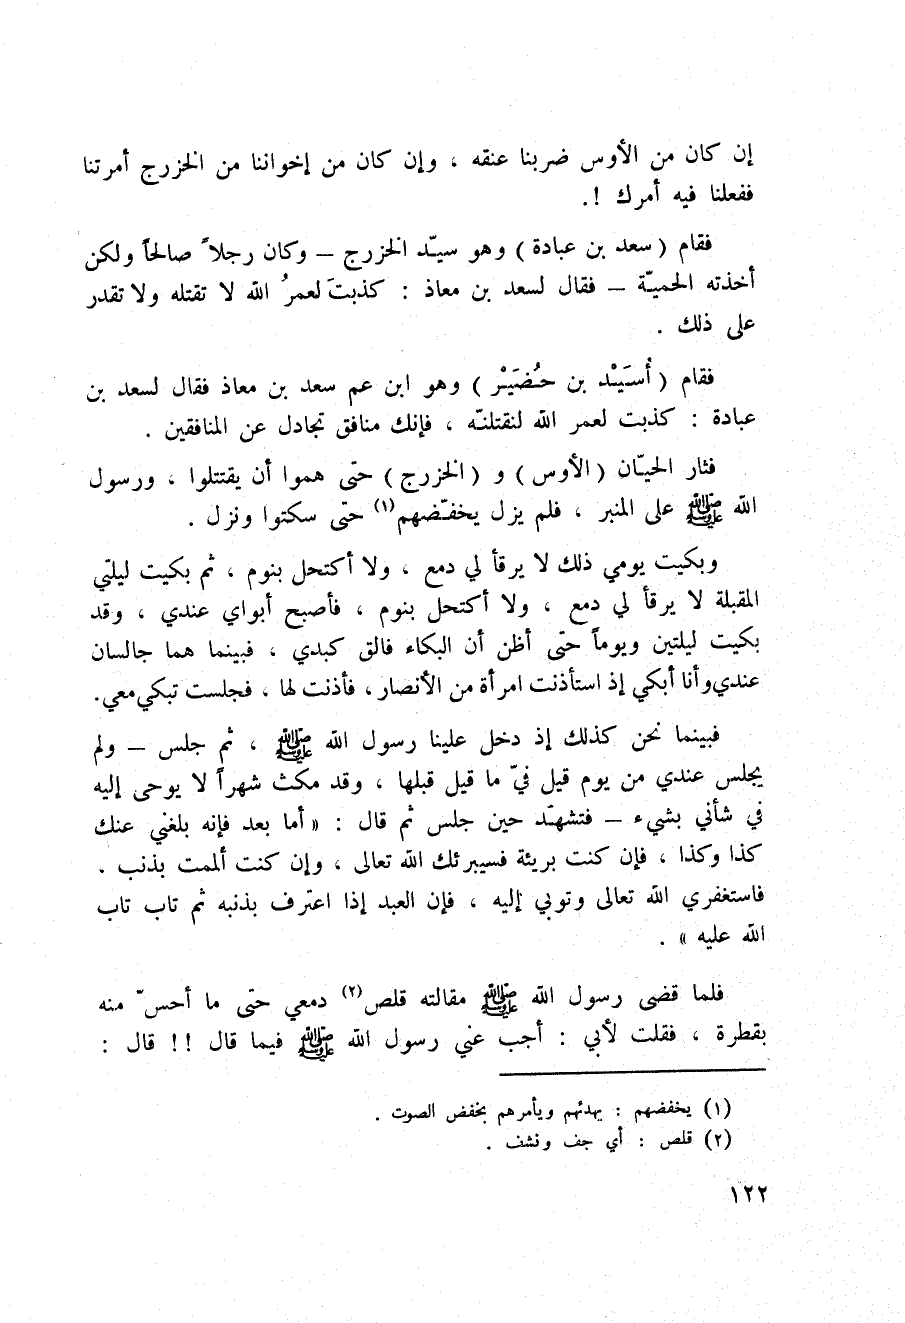 إن كان من الأوس ضربنا عنقه ، وإن كان من إخواننا من الخزرج أمرتنا
ففعلنا فيه أمرك !.
فقام ( سعد بن عبادة ) وهو سيّد الخزرج – وكان رجلاً صالحاً ولكن
أخذته الحميّة – فقال لسعد بن معاذ : كذبتَ لعمرُ الله لا تقتله ولا تقدر
على ذلك .
فقام ( أُسَيْد بن حُضَيْر ) وهو ابن عم سعد بن معاذ فقال لسعد بن
عبادة : كذبت لعمر الله لنقتلنّه ، فإنك منافق تجادل عن المنافقين .
فثار الحيّان ( الأوس ) و ( الخزرج ) حتّى هموا أن يقتتلوا ، ورسول
الله ﷺ على المنبر ، فلم يزل يخفّضهم(١) حتّى سكتوا ونزل .
وبكيت يومي ذلك لا يرقأ لي دمع ، ولا أكتحل بنوم ، ثم بكيت ليلتي
المقبلة لا يرقأ لي دمع ، ولا أكتحل بنوم ، فأصبح أبواي عندي ، وقد
بكيت ليلتين ويوماً حتّى أظن أن البكاء فالق كبدي ، فبينما هما جالسان
عندي وأنا أبكي إذ استأذنت امرأة من الأنصار ، فأذنت لها ، فجلست تبكي معي.
فبينما نحن كذلك إذ دخل علينا رسول الله ﷺ ، ثم جلس – ولم
يجلس عندي من يوم قيل فيّ ما قيل قبلها ، وقد مكث شهراً لا يوحى إليه
في شأني بشيء – فتشهّد حين جلس ثم قال : « أما بعد فإنه بلغني عنك
كذا وكذا ، فإن كنت بريئة فسيبرئك الله تعالى ، وإن كنت ألممت بذنب .
فاستغفري الله تعالى وتوبي إليه ، فإن العبد إذا اعترف بذنبه ثم تاب تاب
الله عليه » .
فلما قضى رسول الله ﷺ مقالته قلص(٢) دمعي حتى ما أحسّ منه
بقطرة ، فقلت لأبي : أجب عني رسول الله ﷺ فيما قال !! قال :
(١) يخفضهم : يهدئهم ويأمرهم بخفض الصوت .
(٢) قلص : أي جف ونشف .
١٢٢